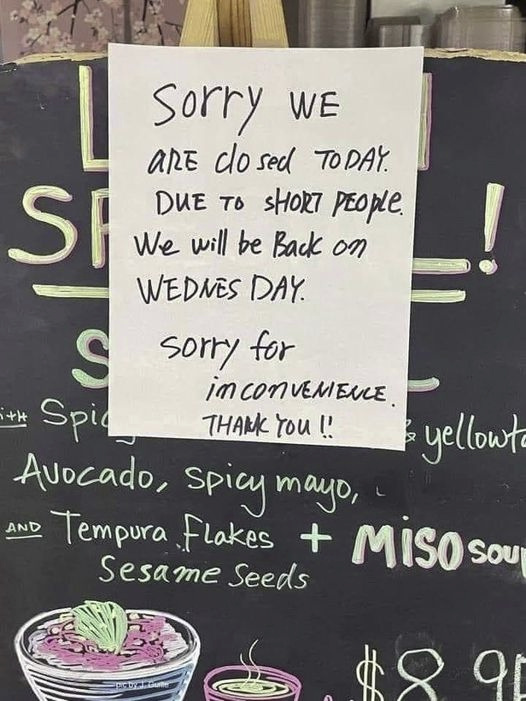 Sorry WE
ARE closed TODAY.
DUE TO SHORT PEOPLE.
We will be Back on
WEDNESDAY.
sorry for
inconVENIENCE.
THANK YOU !!
L
SP !
S
with Spic & yellowta
Avocado, spicy mayo,
AND Tempura Flakes + Miso sou
Sesame Seeds
$8.95